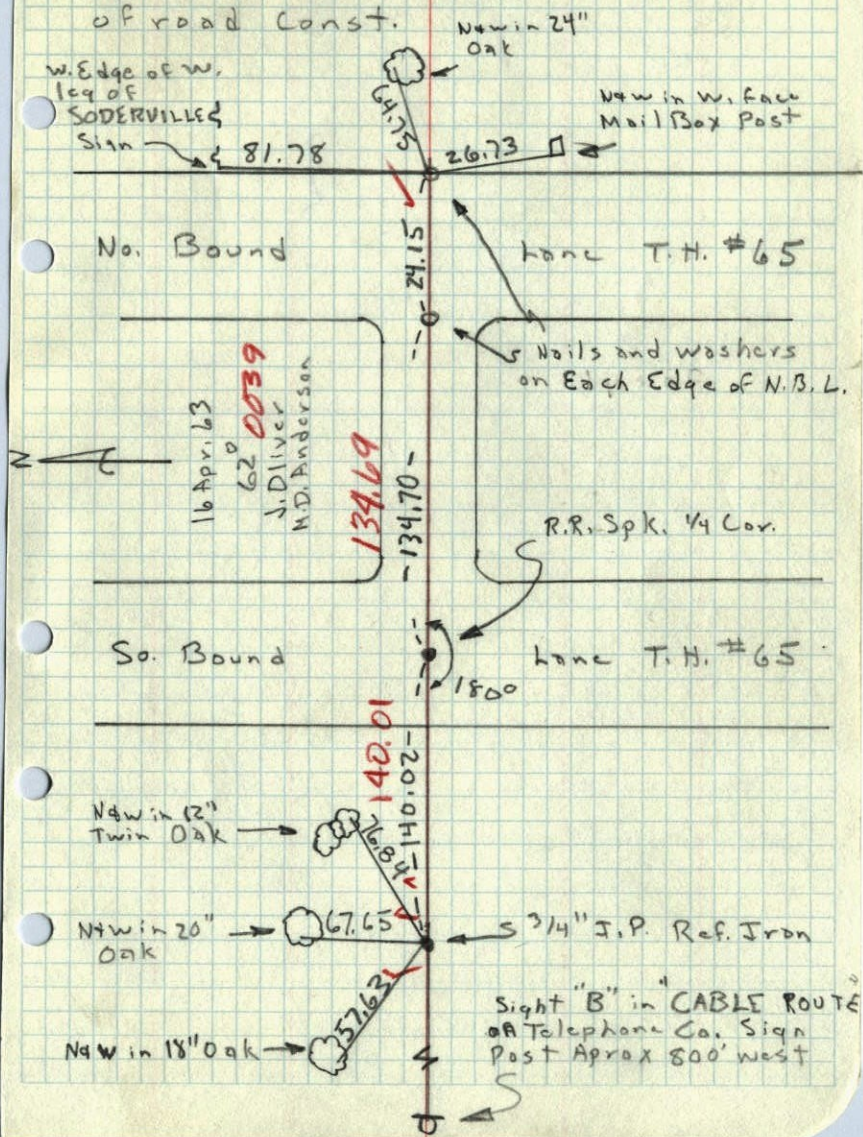 of road Const.
N&W in 24"
Oak
W. Edge of W.
leg of
SODERVILLE
Sign
64.75
N&W in W. Face
Mail Box Post
81.78
26.73
No. Bound
24.15
Lane T.H. #65
Nails and Washers
on Each Edge of N.B.L.
N
16 Apr. 63
62°
0039
J. Oliver
M.D. Anderson
134.69
134.70
R.R. Spk. 1/4 Cor.
So. Bound
Lane T.H. #65
180°
140.01
140.02
N&W in 12"
Twin Oak
76.84
N&W in 20"
Oak
67.65
3/4" I.P. Ref. Iron
57.63
N&W in 18" Oak
Sight "B" in "CABLE ROUTE"
on Telephone Co. Sign
Post Aprox 800' West